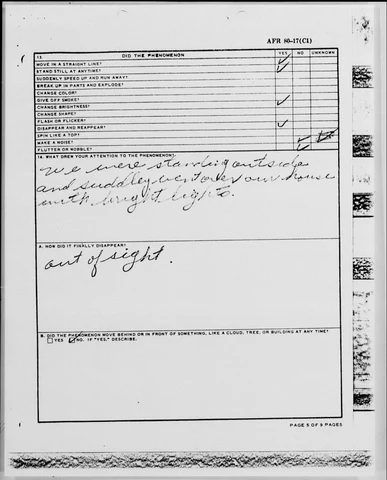 AFR 80-17(C1)
13. DID THE PHENOMENON YES NO UNKNOWN
MOVE IN A STRAIGHT LINE? ✓
STAND STILL AT ANYTIME? ✓
SUDDENLY SPEED UP AND RUN AWAY?
BREAK UP IN PARTS AND EXPLODE?
CHANGE COLOR?
GIVE OFF SMOKE? ✓
CHANGE BRIGHTNESS?
CHANGE SHAPE?
FLASH OR FLICKER? ✓
DISAPPEAR AND REAPPEAR?
SPIN LIKE A TOP?
MAKE A NOISE? ✓
FLUTTER OR WOBBLE? ✓
14. WHAT DREW YOUR ATTENTION TO THE PHENOMENON?
We were standing outside
and suddley went over our house
with bright lights.
A. HOW DID IT FINALLY DISAPPEAR?
out of sight.
B. DID THE PHENOMENON MOVE BEHIND OR IN FRONT OF SOMETHING, LIKE A CLOUD, TREE, OR BUILDING AT ANY TIME?
☐ YES ☑ NO. IF "YES," DESCRIBE.
PAGE 5 OF 9 PAGES